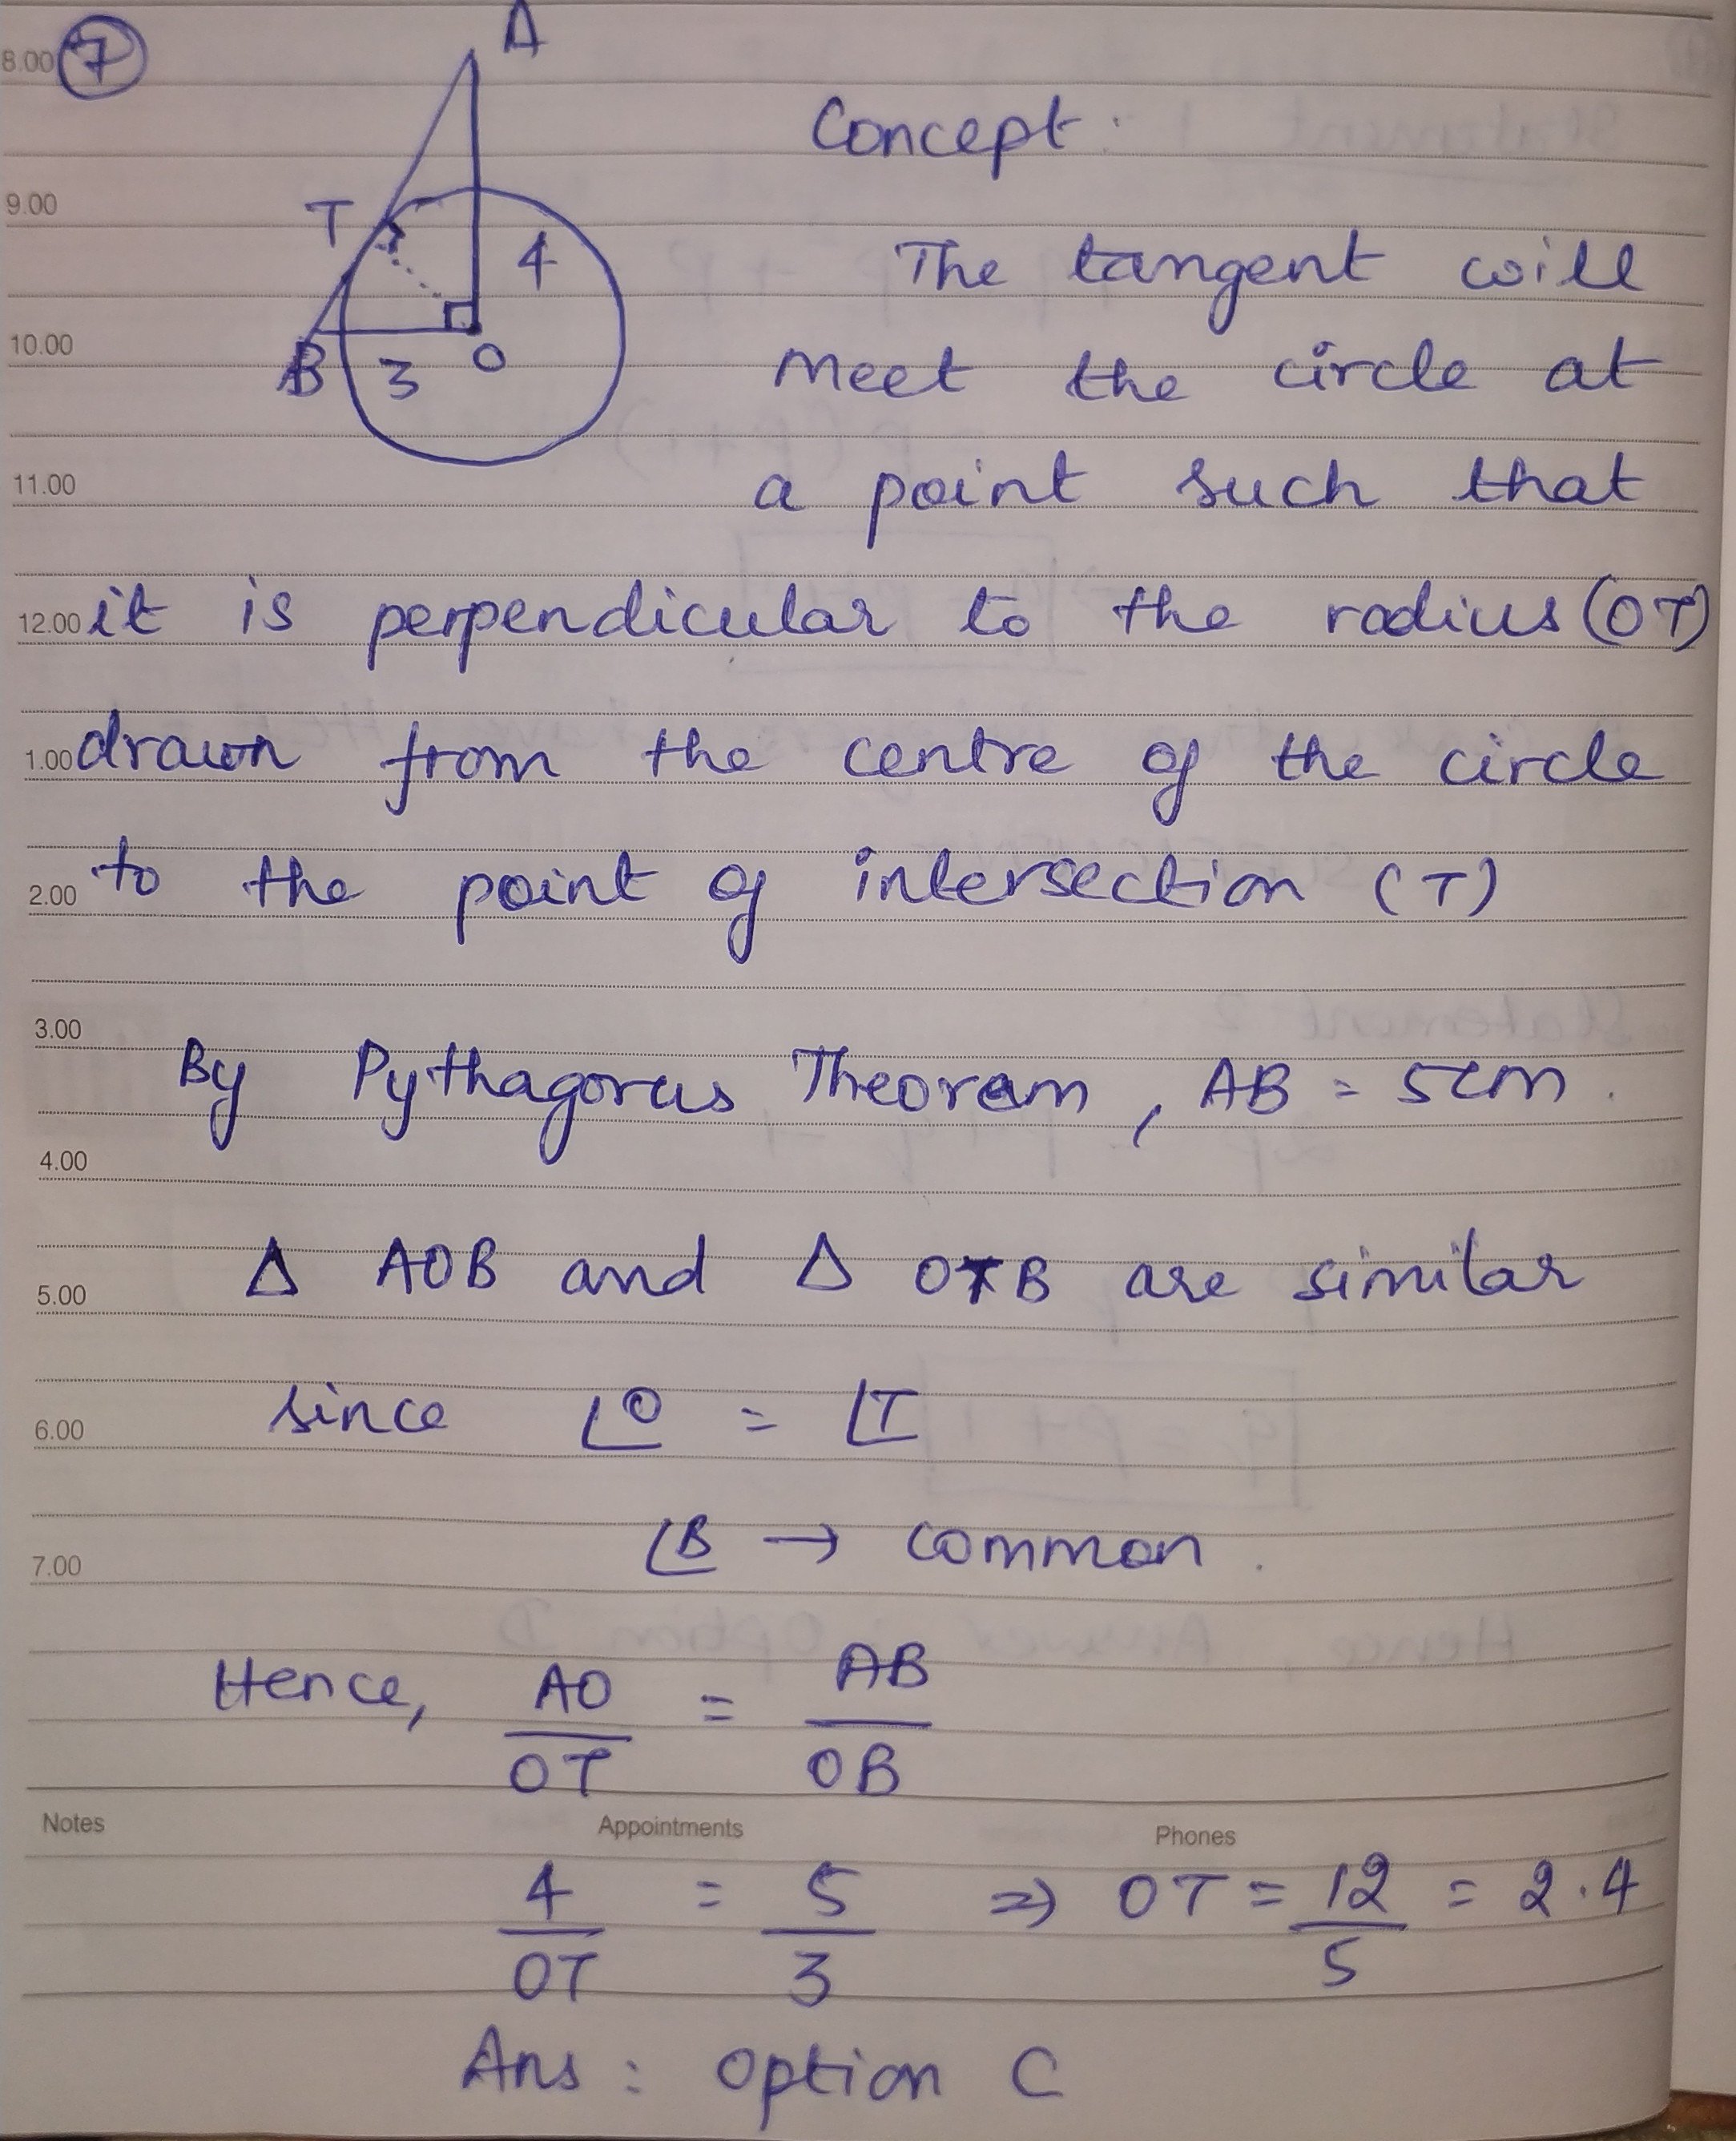 8.00 7
A
Concept:
9.00
T
4
The tangent will
10.00
B 3 O
meet the circle at
11.00
a point such that
12.00 it is perpendicular to the radius (OT)
1.00 drawn from the centre of the circle
2.00 to the point of intersection (T)
3.00
By Pythagoras Theorem, AB = 5cm.
4.00
Δ AOB and Δ OTB are similar
5.00
since ∠O = ∠T
6.00
∠B → common.
7.00
Hence, AO/OT = AB/OB
Notes Appointments Phones
4/OT = 5/3 ⇒ OT = 12/5 = 2.4
Ans: Option C